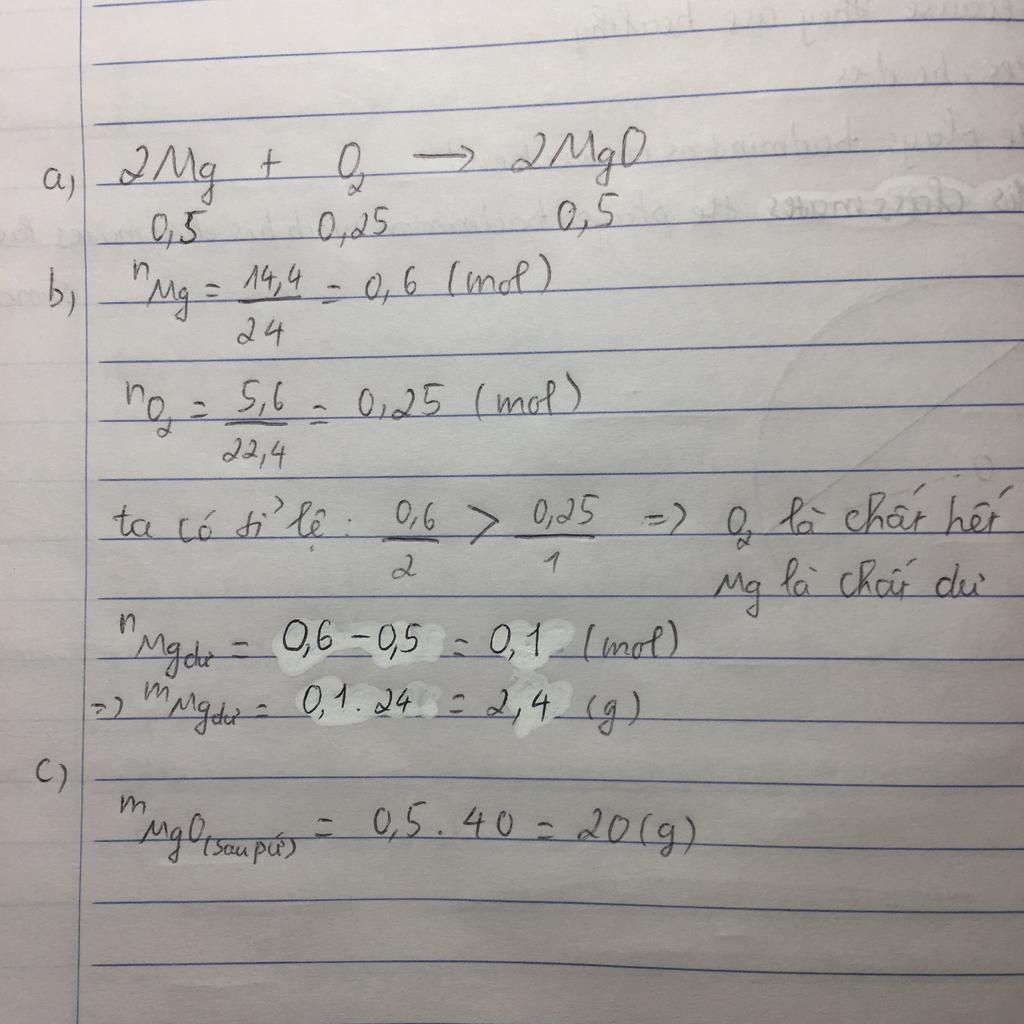 a, 2Mg + O₂ → 2MgO
0,5 0,25 0,5
b, nMg = 14,4/24 = 0,6 (mol)
nO₂ = 5,6/22,4 = 0,25 (mol)
ta có tỉ lệ : 0,6/2 > 0,25/1 => O₂ là chất hết
Mg là chất dư
nMg dư = 0,6 - 0,5 = 0,1 (mol)
=> mMg dư = 0,1 . 24 = 2,4 (g)
c)
mMgO (sau pứ) = 0,5 . 40 = 20 (g)